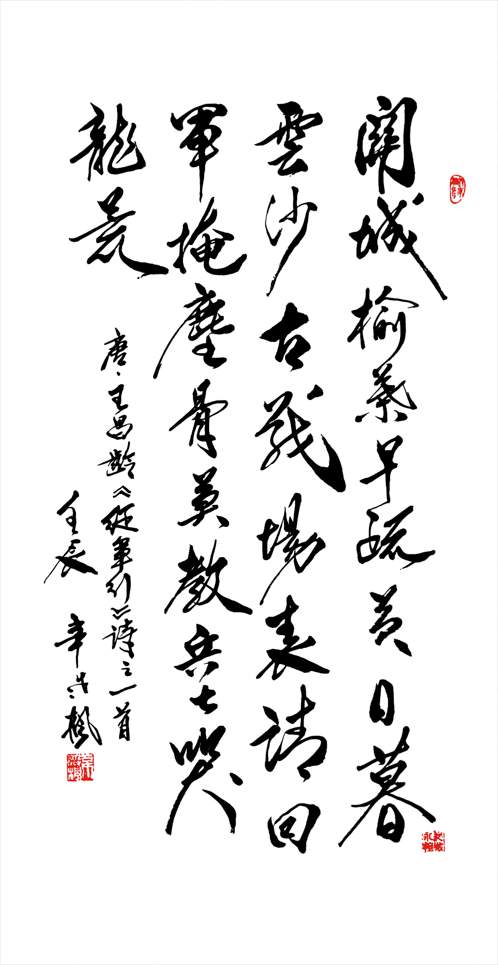 關城榆葉早疏黃日暮
雲沙古戰場表請回
軍掩塵骨莫教兵士哭
龍荒
唐·王昌齡《從軍行》詩之一首
壬辰 辛 楓